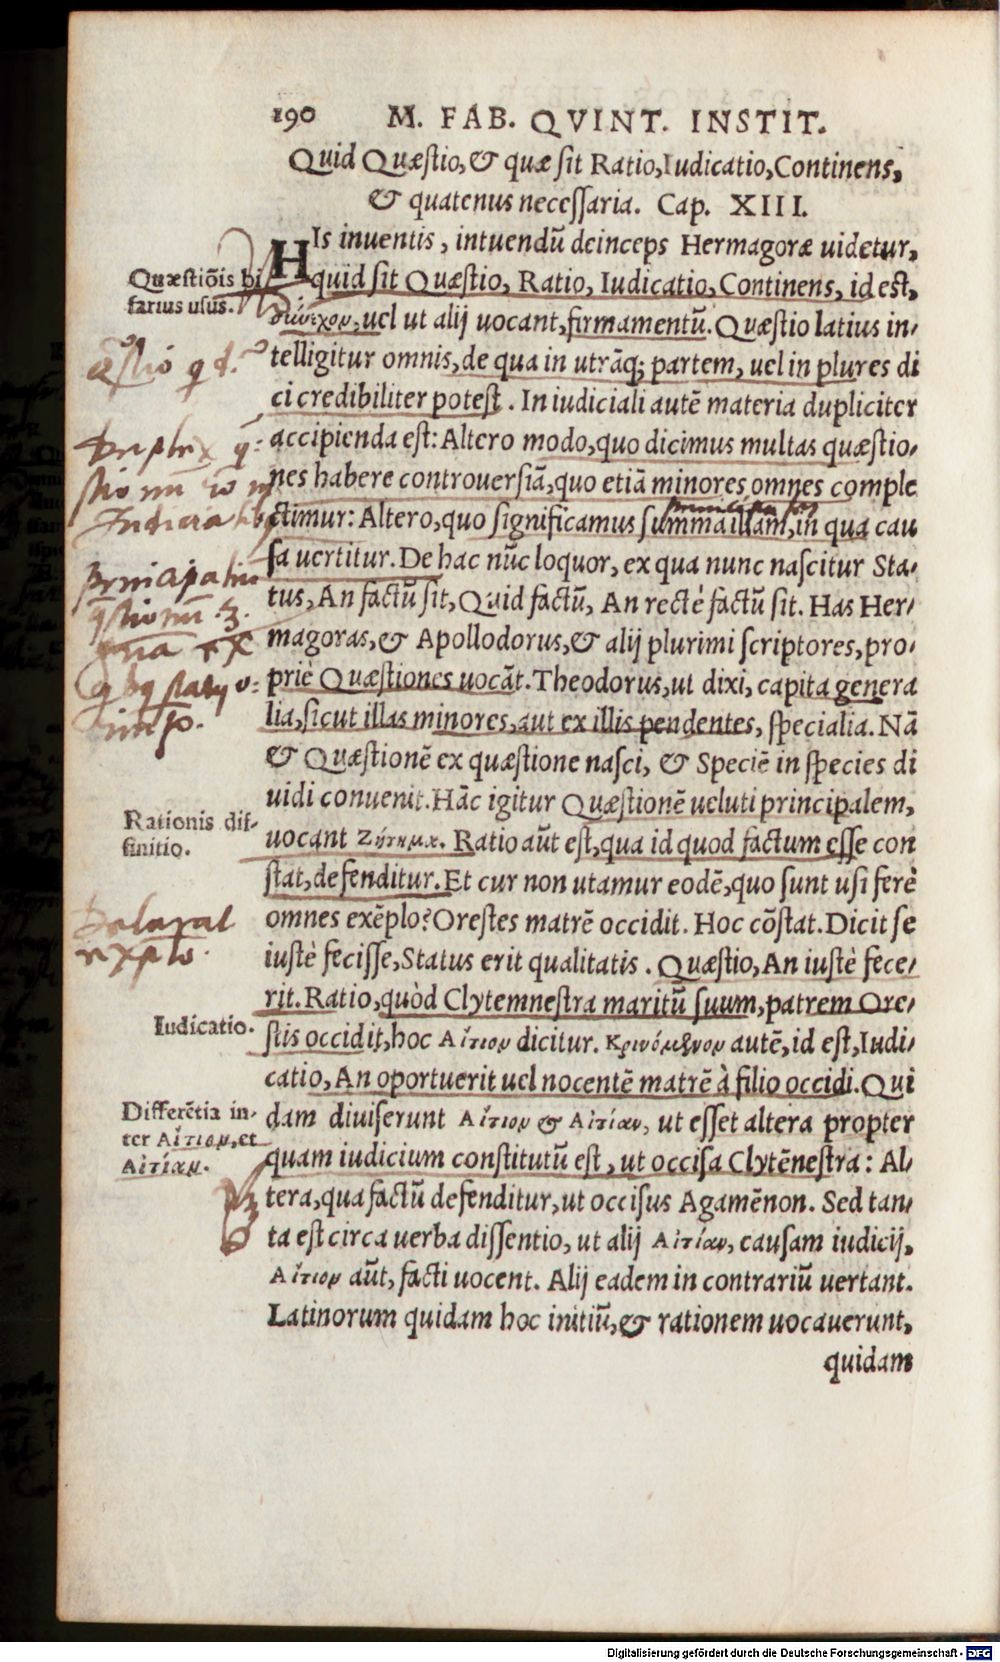 190 M. FAB. QVINT. INSTIT.
Quid Quæstio, & quæ sit Ratio, Iudicatio, Continens,
& quatenus necessaria. Cap. XIII.
HIs inuentis, intuendū deinceps Hermagoræ uidetur,
quid sit Quæstio, Ratio, Iudicatio, Continens, id est,
συνέχον, uel ut alij uocant, firmamentū. Quæstio latius in-
telligitur omnis, de qua in utrāq; partem, uel in plures di
ci credibiliter potest. In iudiciali autē materia dupliciter
accipienda est: Altero modo, quo dicimus multas quæstio-
nes habere controuersiā, quo etiā minores omnes comple
ctimur: Altero, quo significamus summā illam, in qua cau
sa uertitur. De hac nūc loquor, ex qua nunc nascitur Sta-
tus, An factū sit, Quid factū, An rectè factū sit. Has Her-
magoras, & Apollodorus, & alij plurimi scriptores, pro-
priè Quæstiones uocāt. Theodorus, ut dixi, capita genera
lia, sicut illas minores, aut ex illis pendentes, specialia. Nā
& Quæstionē ex quæstione nasci, & Speciē in species di
uidi conuenit. Hāc igitur Quæstionē ueluti principalem,
uocant Ζήτημα. Ratio aūt est, qua id quod factum esse con
stat, defenditur. Et cur non utamur eodē, quo sunt usi ferè
omnes exēplo? Orestes matrē occidit. Hoc cōstat. Dicit se
iustè fecisse, Status erit qualitatis. Quæstio, An iustè fece-
rit. Ratio, quòd Clytemnestra maritū suum, patrem Ore-
stis occidit, hoc Αἴτιον dicitur. Κρινόμενον autē, id est, Iudi-
catio, An oportuerit uel nocentē matrē à filio occidi. Qui
dam diuiserunt Αἴτιον & Αἰτίαν, ut esset altera propter
quam iudicium constitutū est, ut occisa Clytēnestra: Al-
tera, qua factū defenditur, ut occisus Agamēnon. Sed tan-
ta est circa uerba dissentio, ut alij Αἰτίαν, causam iudicij,
Αἴτιον aūt, facti uocent. Alij eadem in contrariū uertant.
Latinorum quidam hoc initiū, & rationem uocauerunt,
quidam
Quæstiōis bi
farius usus.
Rationis dif-
finitio.
Iudicatio.
Differētia in-
ter Αἴτιον, et
Αἰτίαν.
Digitalisierung gefördert durch die Deutsche Forschungsgemeinschaft - DFG